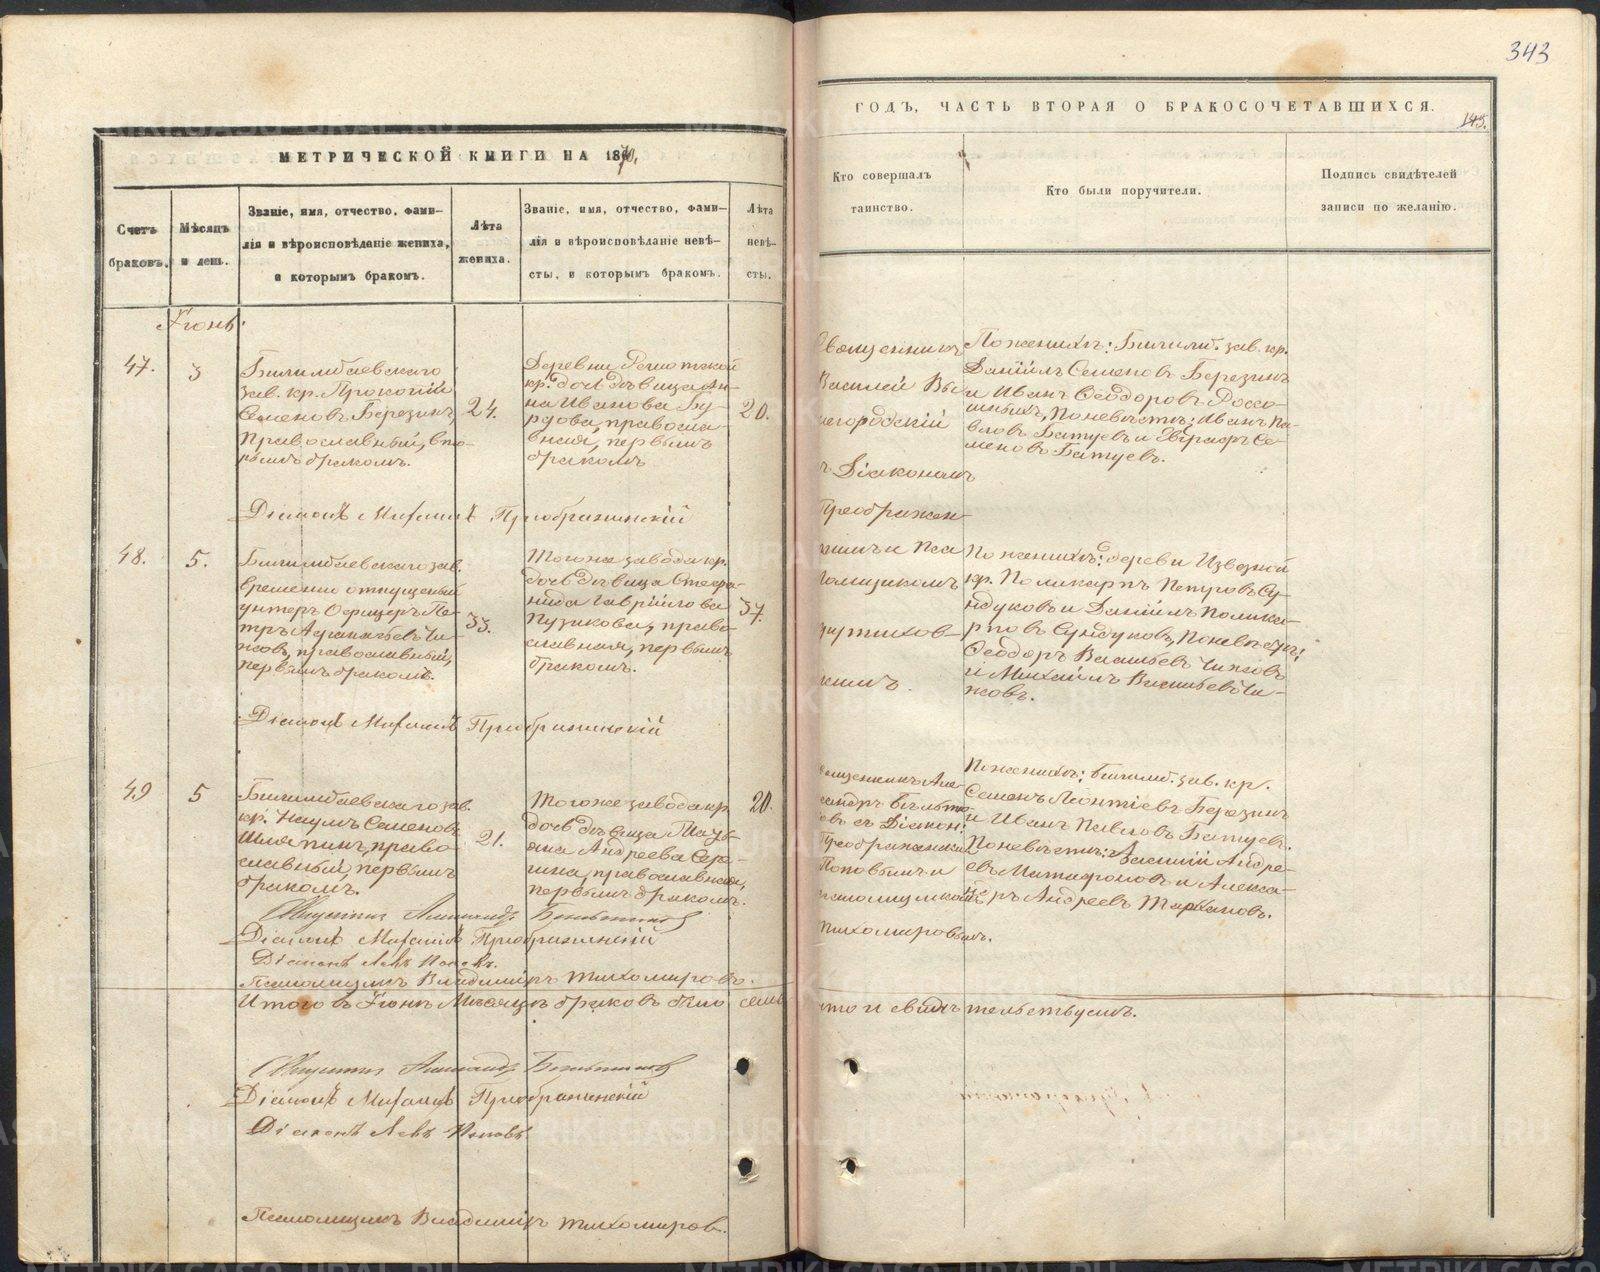 343
МЕТРИЧЕСКОЙ КНИГИ НА 1870,
ГОДЪ, ЧАСТЬ ВТОРАЯ О БРАКОСОЧЕТАВШИХСЯ.
145.
Счетъ
браковъ.
Мѣсяцъ
и день.
Званіе, имя, отчество, фами-
лія и вѣроисповѣданіе жениха,
и которымъ бракомъ.
Лѣта
жениха.
Званіе, имя, отчество, фами-
лія и вѣроисповѣданіе невѣ-
сты, и которымъ бракомъ.
Лѣта
невѣ-
сты.
Кто совершалъ
таинство.
Кто были поручители.
Подпись свидѣтелей
записи по желанію.
Іюнь.
47.
3
Билимбаевскаго
зав. кр. Прокопій
Семеновъ Березинъ,
православный, вто-
рымъ бракомъ.
24.
Деревни Решотской
кр. дочь дѣвица Ан-
на Иванова Бу-
рдова, правосла-
вная, первымъ
бракомъ
20.
Священникъ
Василій Вы
негородскій
съ Діакономъ
Преображен-
скимъ и Пса
ломщикомъ
кимъ.
По женихѣ: Билимб. зав. кр.
Даніилъ Семеновъ Березинъ
и Иванъ Ѳеодоровъ Россо-
шныхъ, по невѣстѣ: Иванъ Па-
вловъ Батуевъ и Евграфъ Се-
меновъ Батуевъ.
Діаконъ Михаилъ Преображенскій
48.
5.
Билимбаевскаго зав.
временно отпущеный
унтеръ Офицеръ Пе-
тръ Чи-
жовъ, православный,
первымъ бракомъ.
33.
Тогоже завода кр.
дочь дѣвица Стефа-
нида Гаврійлова
Пузикова, право-
славная, первымъ
бракомъ.
37.
По женихѣ: деревни Извезной
кр. Поликарпъ Петровъ Су-
ндуковъ и Даніилъ Полика-
рповъ Сундуковъ, по невѣстѣ:
Ѳеодоръ Васильевъ Чижовъ
и Михаилъ Васильевъ Чи-
жовъ.
Діаконъ Михаилъ Преображенскій
49
5
Билимбаевскаго зав.
кр. Наумъ Семеновъ
Шляпинъ, право-
славный, первымъ
бракомъ.
21.
Тогоже завода кр.
дочь дѣвица Тать-
яна Андреева Сере-
гина, православная,
первымъ бракомъ.
20.
Священникъ Але-
ксандръ
овъ съ Діакон:
Преображенскимъ
Поповымъ и
псаломщикомъ
Тихомировымъ.
По женихѣ: Билимб. зав. кр.
Семенъ Леонтіевъ Березинъ
и Иванъ Павловъ Батуевъ.
По невѣстѣ: Василій Андре-
евъ Митафоновъ и Алекса-
ндръ Андреевъ Тарханов.
Священникъ Александръ
Діаконъ Михаилъ Преображенскій
Діаконъ Левъ Поповъ.
Псаломщикъ Владиміръ Тихомировъ.
Итого въ Іюнѣ Мѣсяцѣ браковъ было семь
что и свидѣтельствуемъ.
Священникъ Александръ
Діаконъ Михаилъ Преображенскій
Діаконъ Левъ Поповъ
Псаломщикъ Владиміръ Тихомиров.
METRIKI.GASO-URAL.RU